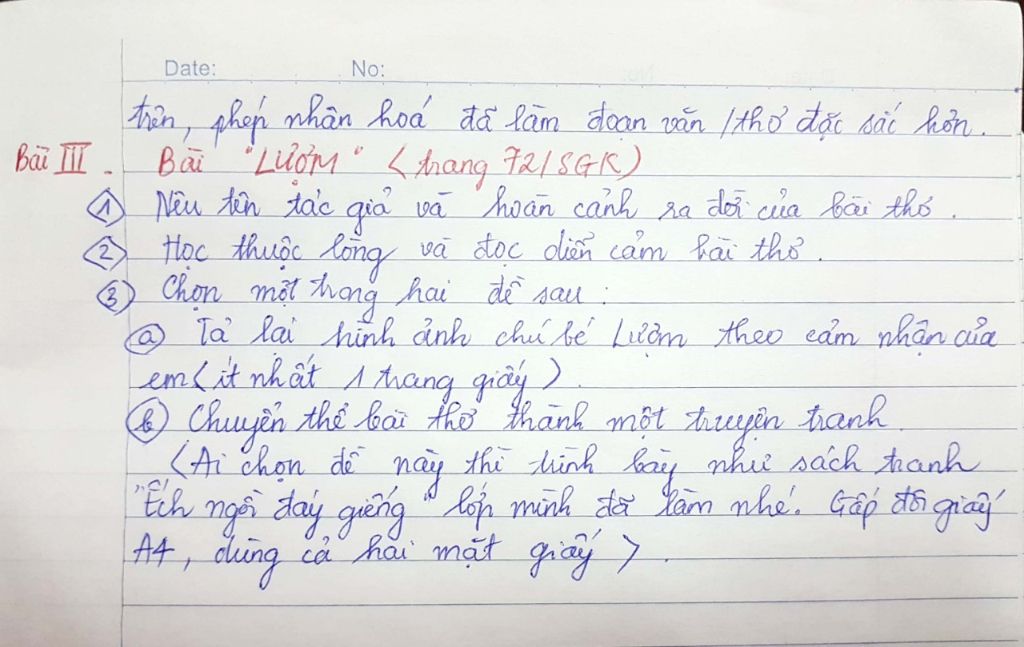 Date: No:
trên, phép nhân hoá đã làm đoạn văn / thơ đặc sắc hơn.
Bài III. Bài "LƯỢM" (trang 72/SGK)
1 Nêu tên tác giả và hoàn cảnh ra đời của bài thơ.
2 Học thuộc lòng và đọc diễn cảm bài thơ.
3 Chọn một trong hai đề sau:
a Tả lại hình ảnh chú bé Lượm theo cảm nhận của
em (ít nhất 1 trang giấy).
b Chuyển thể bài thơ thành một truyện tranh.
(Ai chọn đề này thì trình bày như sách tranh
"Ếch ngồi đáy giếng" lớp mình đã làm nhé. Gấp đôi giấy
A4, dùng cả hai mặt giấy).